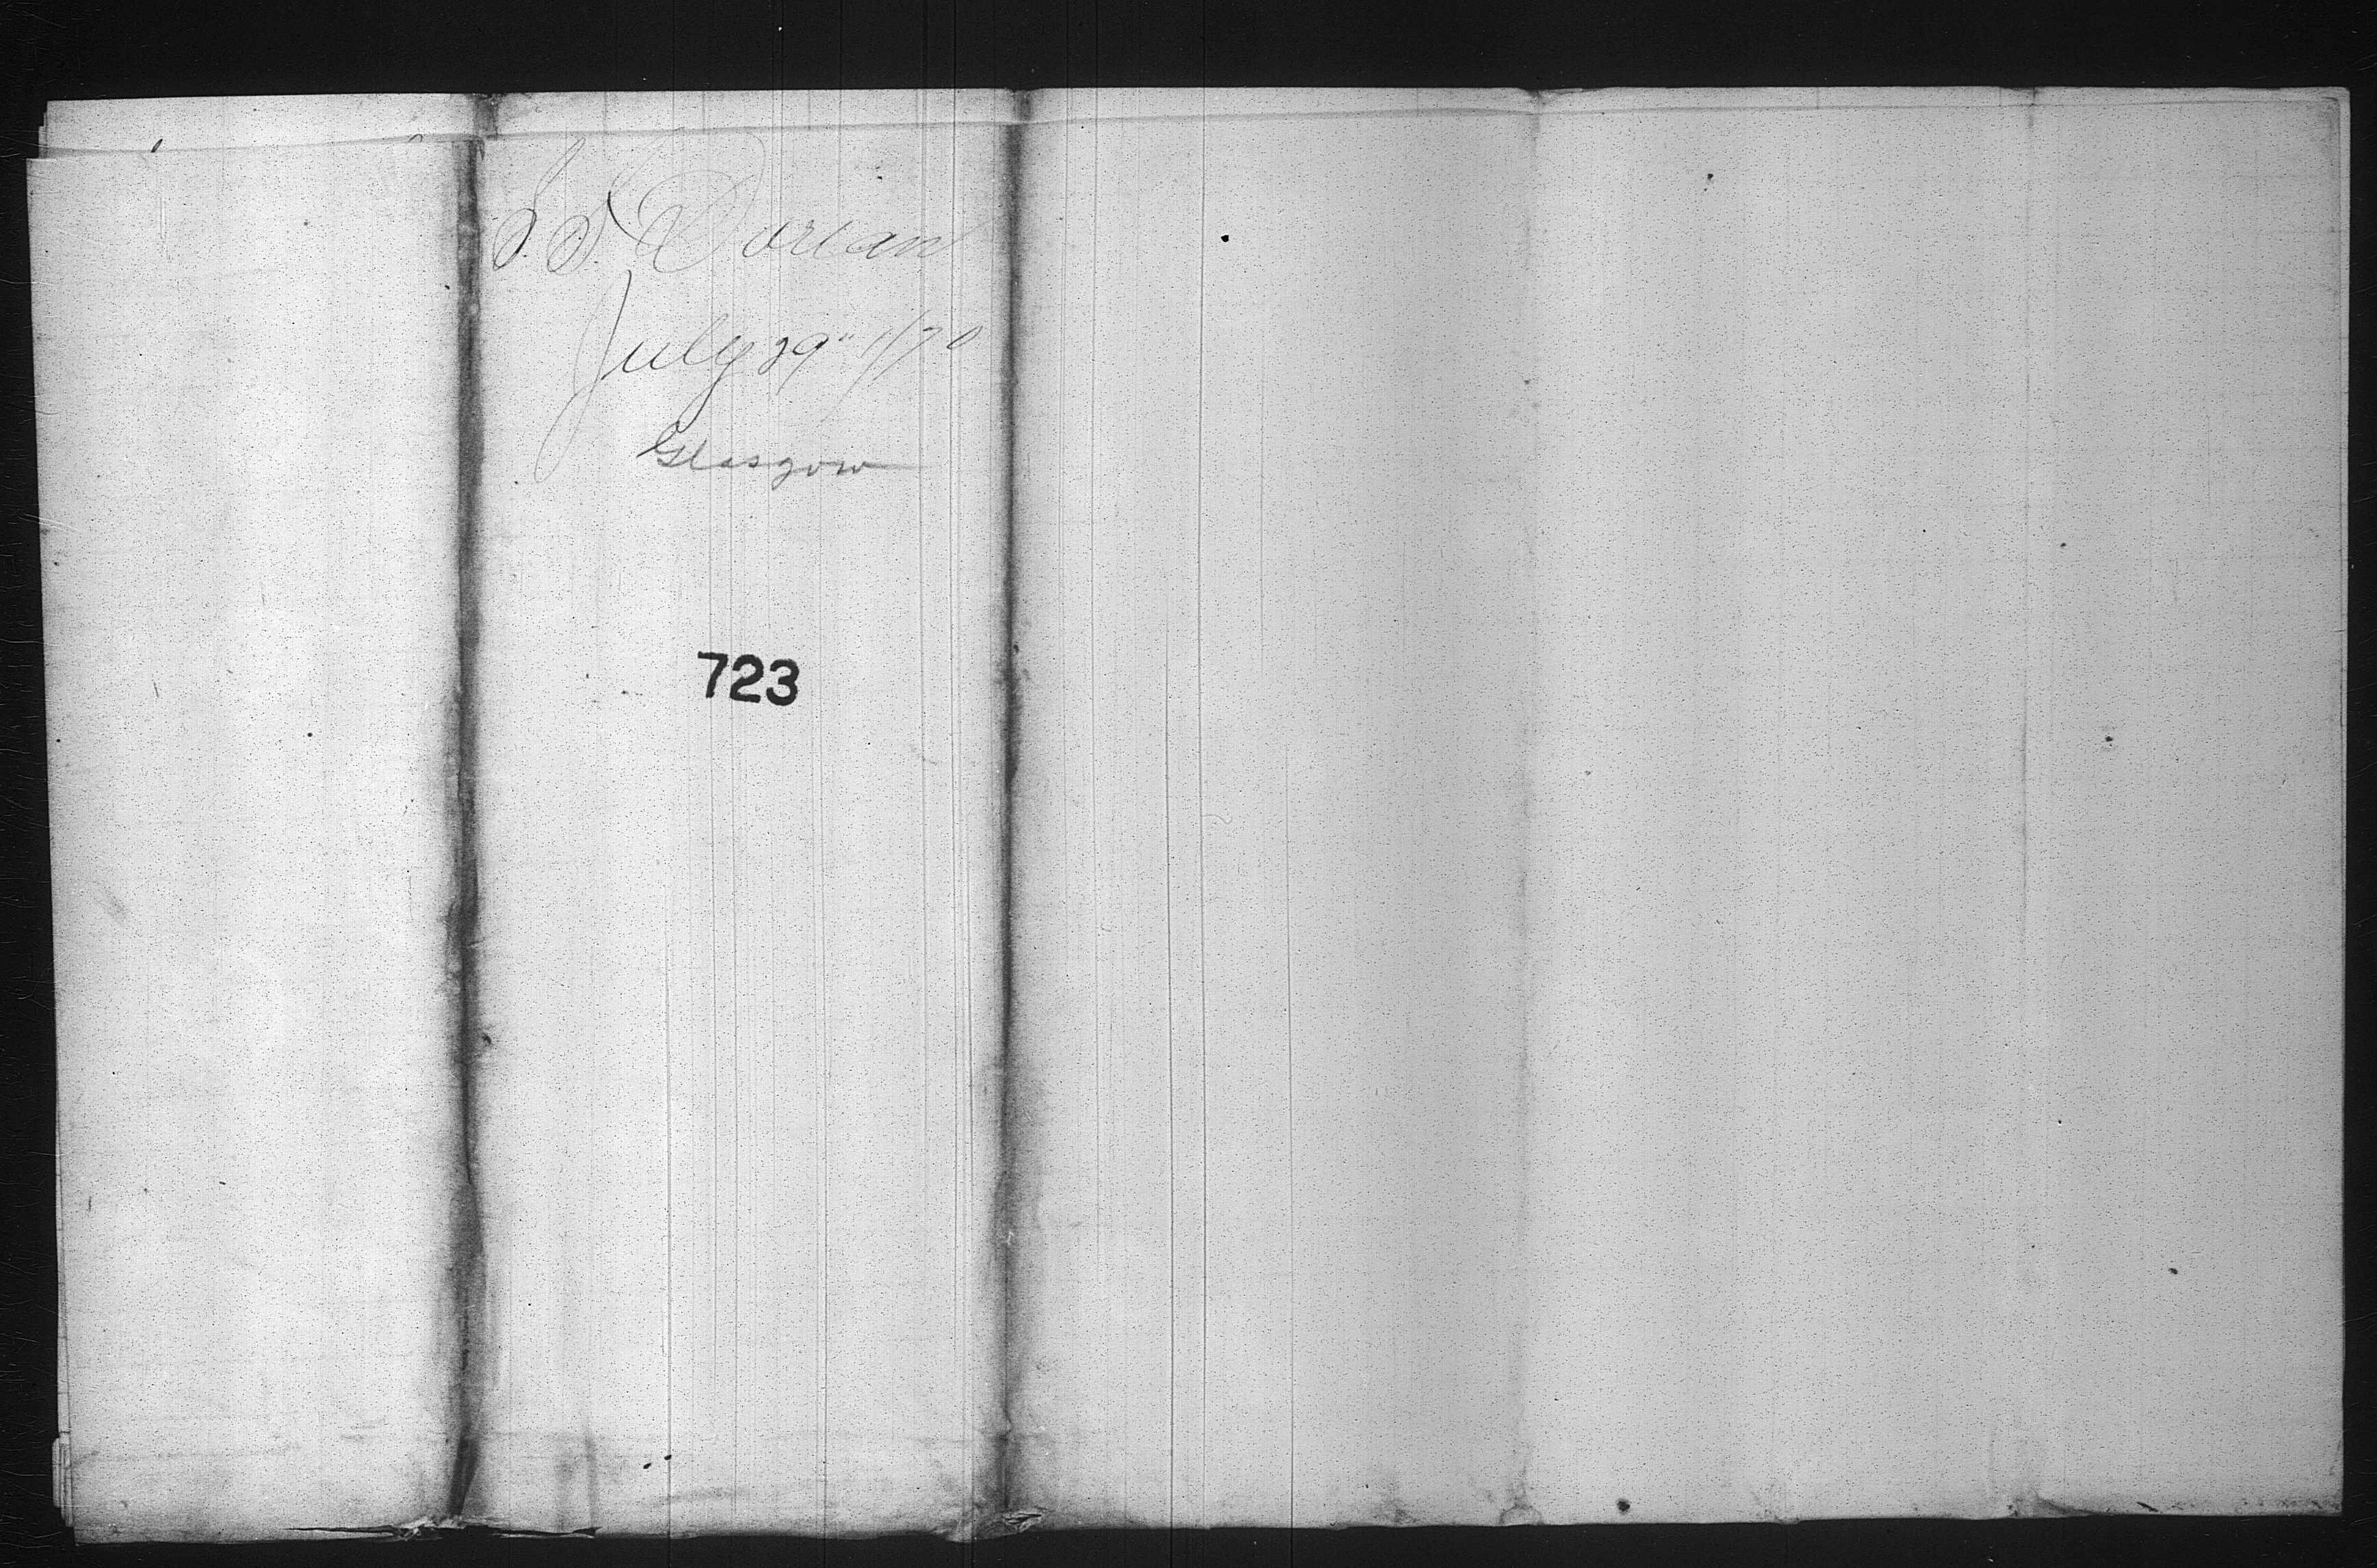 S.S. Dorian
July 29" 1/70
Glasgow
723